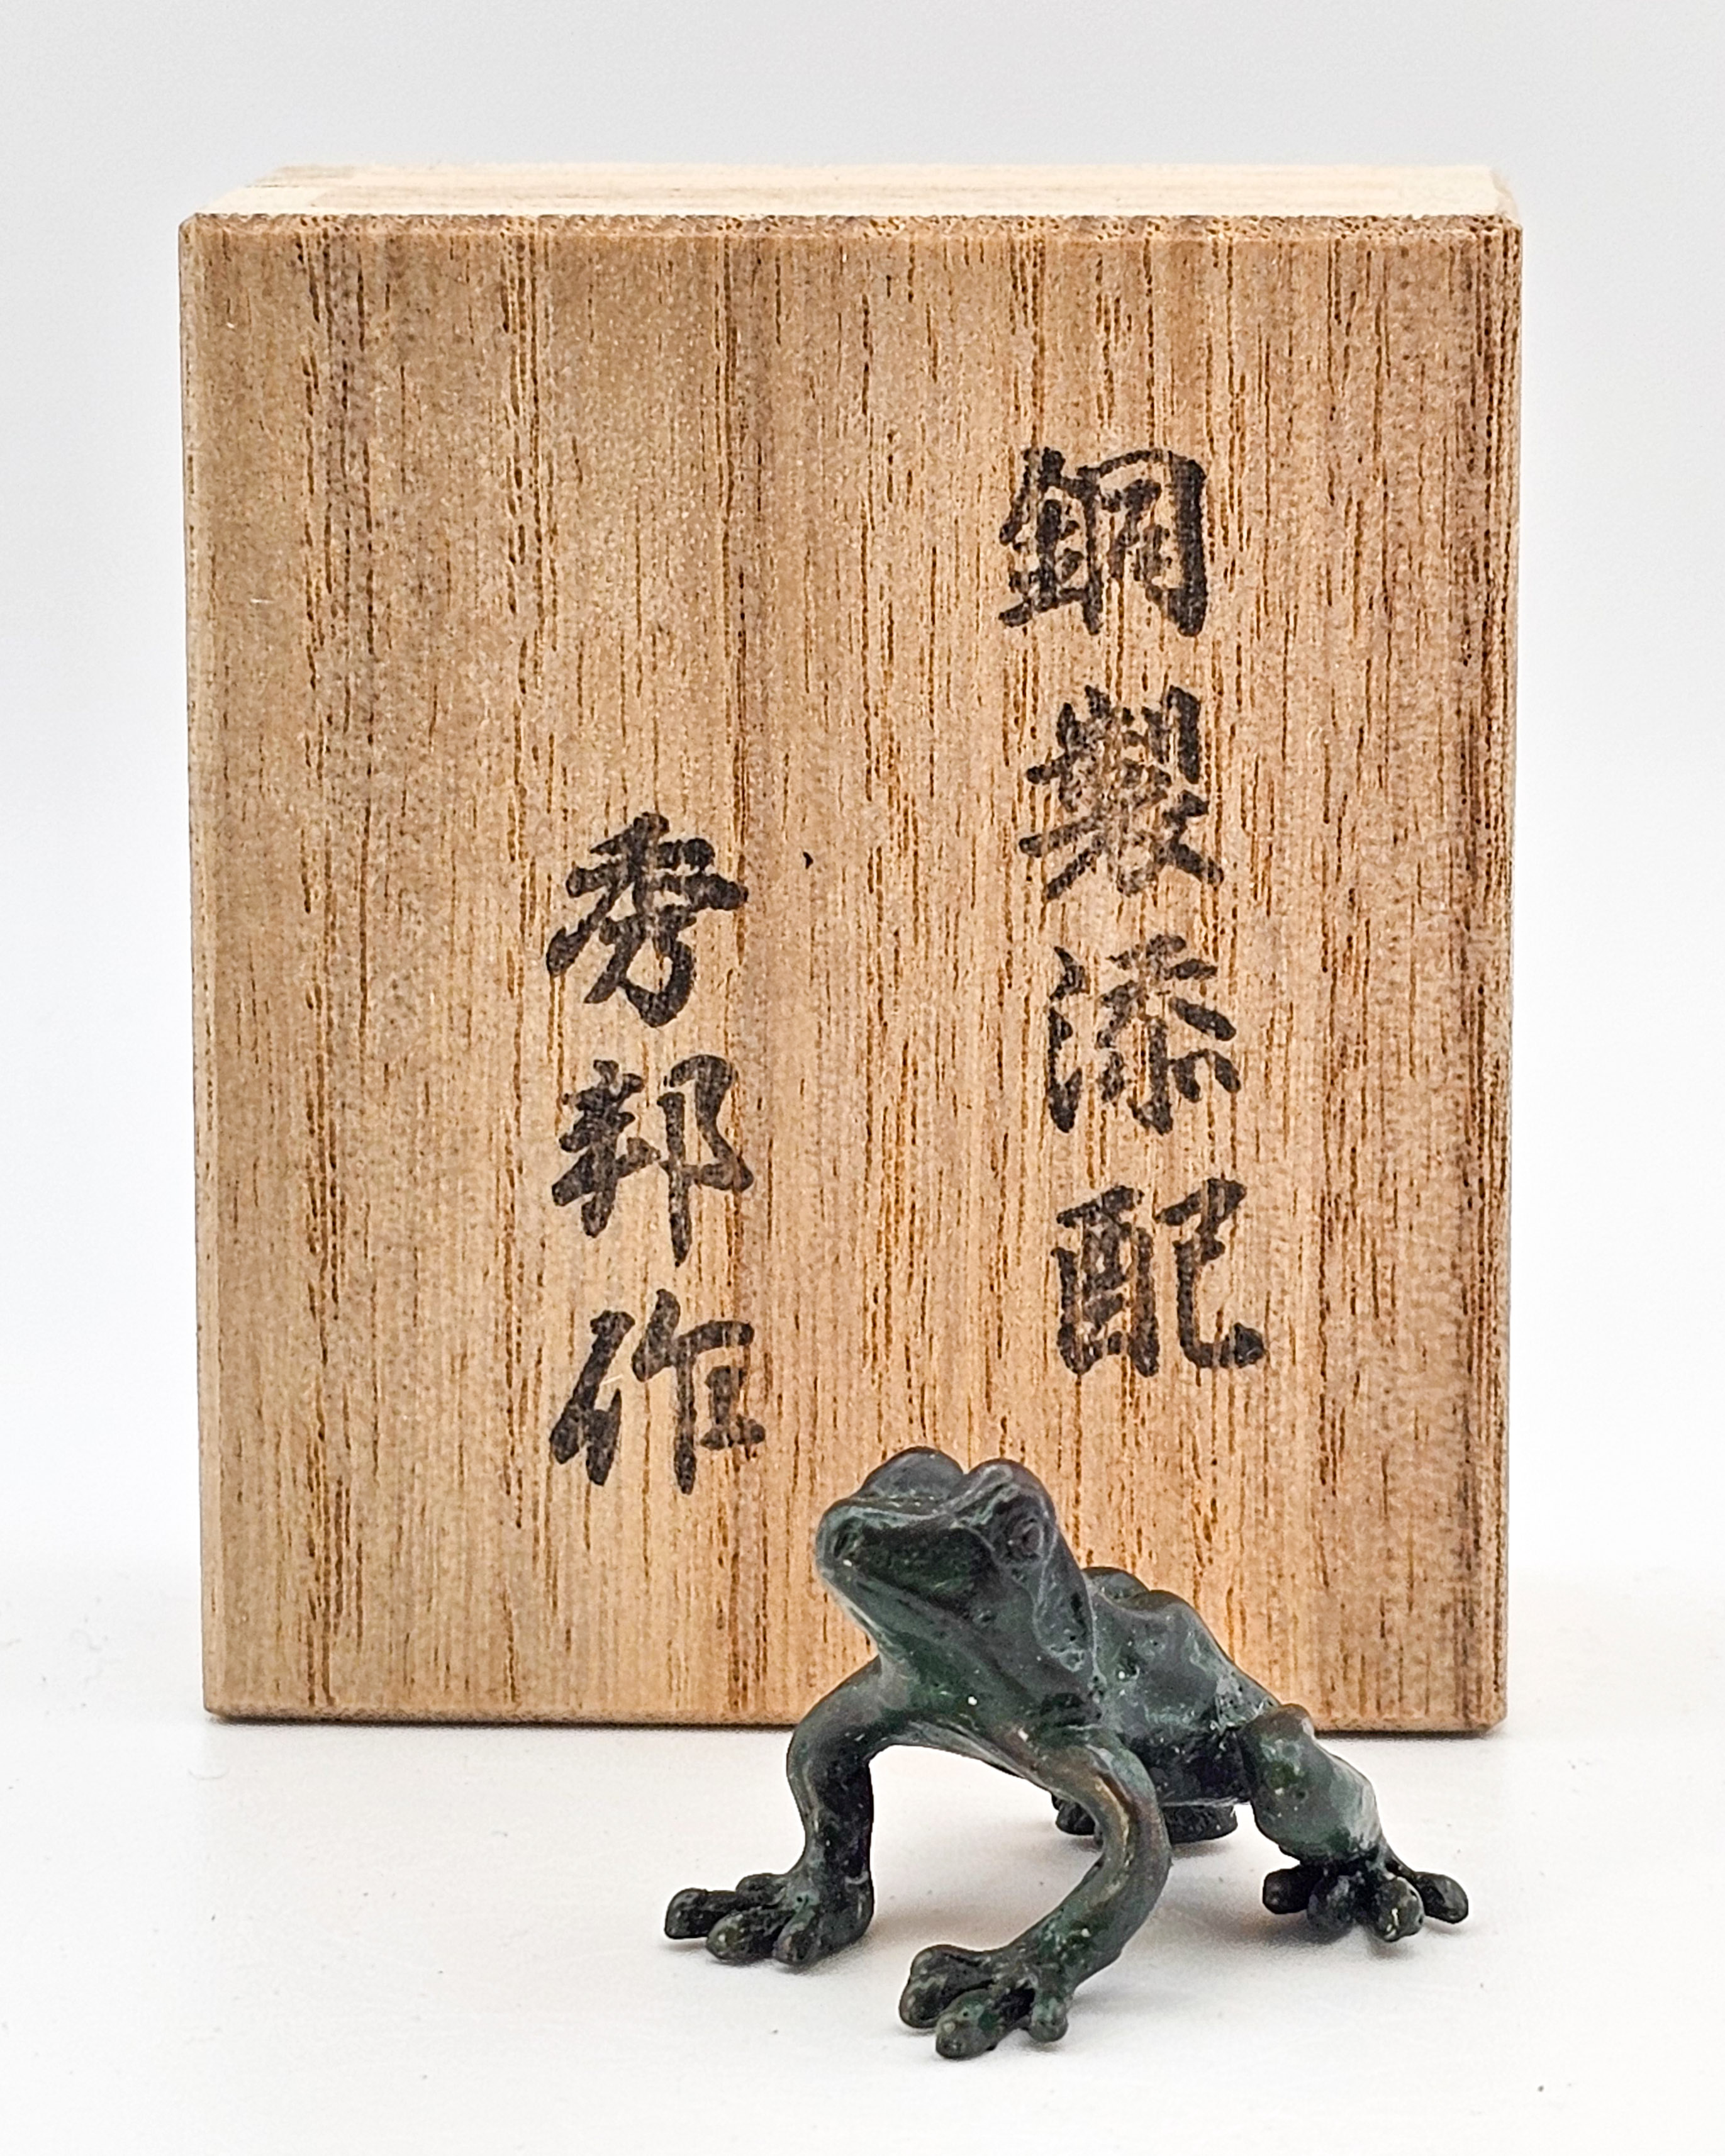 銅製添配
秀邦作